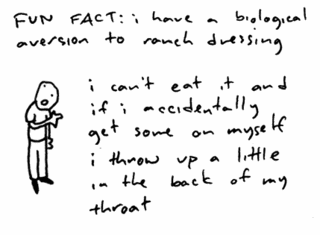 FUN FACT: i have a biological
aversion to ranch dressing
i can't eat it and
if i accidentally
get some on myself
i throw up a little
in the back of my
throat